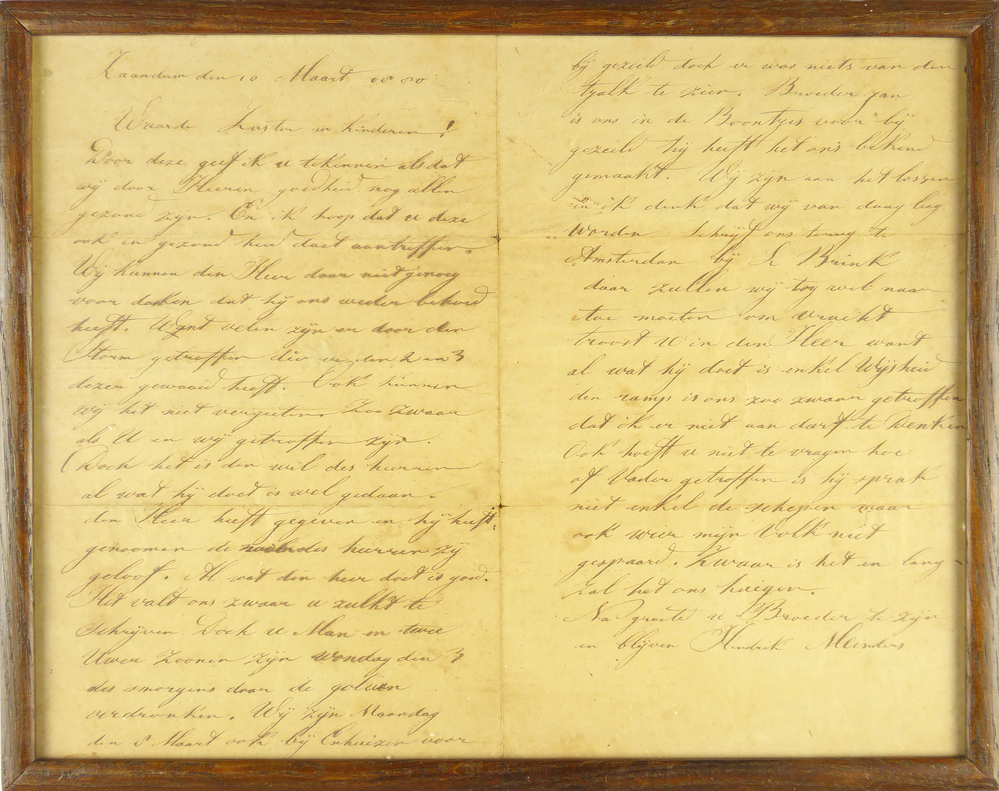 Zaandam den 10 Maart 1880
Waarde Zuster en Kinderen!
Door deze geef ik u te kennen als dat
wij door Heeren goedheid nog allen
gezond zijn. En ik hoop dat u deze
ook in gezond heid daet aantreffen.
Wij kunnen den Heer daar niet genoeg
voor danken dat hij ons weder behoed
heeft. Want velen zijn er door den
Storm getroffen die er den 2 en 3
dezer gewaaid heeft. Ook kunnen
wij het niet vergeeten. Zoo zwaar
als U en wij getroffen zijn.
Doch het is den wil des heeren
al wat hij doet is wel gedaan.
den Heer heeft gegeven en hij heeft
genoomen de naam des heeren zij
geloof. Al wat den heer doet is goed.
Het valt ons zwaar u zulks te
Schrijven Doch u Man en twee
Uwer Zoonen zijn wondag den 3
des smorgens door de golven
verdronken. Wij zijn Maandag
den 8 Maart ook bij Enkuizen voor
bij gezeild doch er was niets van den
tjalk te zien. Broeder Jan
is ons in de Boontjes voor bij
gezeild hij heeft het ons bekend
gemaakt. Wij zijn aan het lossen
en ik denk dat wij van daag leeg
worden Schrijf ons terug te
Amsterdam bij Brink
daar zullen wij tog wel naar
toe moeten om vracht
troost U in den Heer want
al wat hij doet is enkel Wijsheid
den ramp is ons zoo zwaar getroffen
dat ik er niet aan durf te Denken
Ook hoeft u niet te vragen hoe
of Vader getroffen is hij sprak
niet enkel de schepen maar
ook wier mijn Volk niet
gespaard. Zwaar is het en lang
zal het ons heugen.
Na groete u Broeder te zijn
en blijven Hendrik Meinders